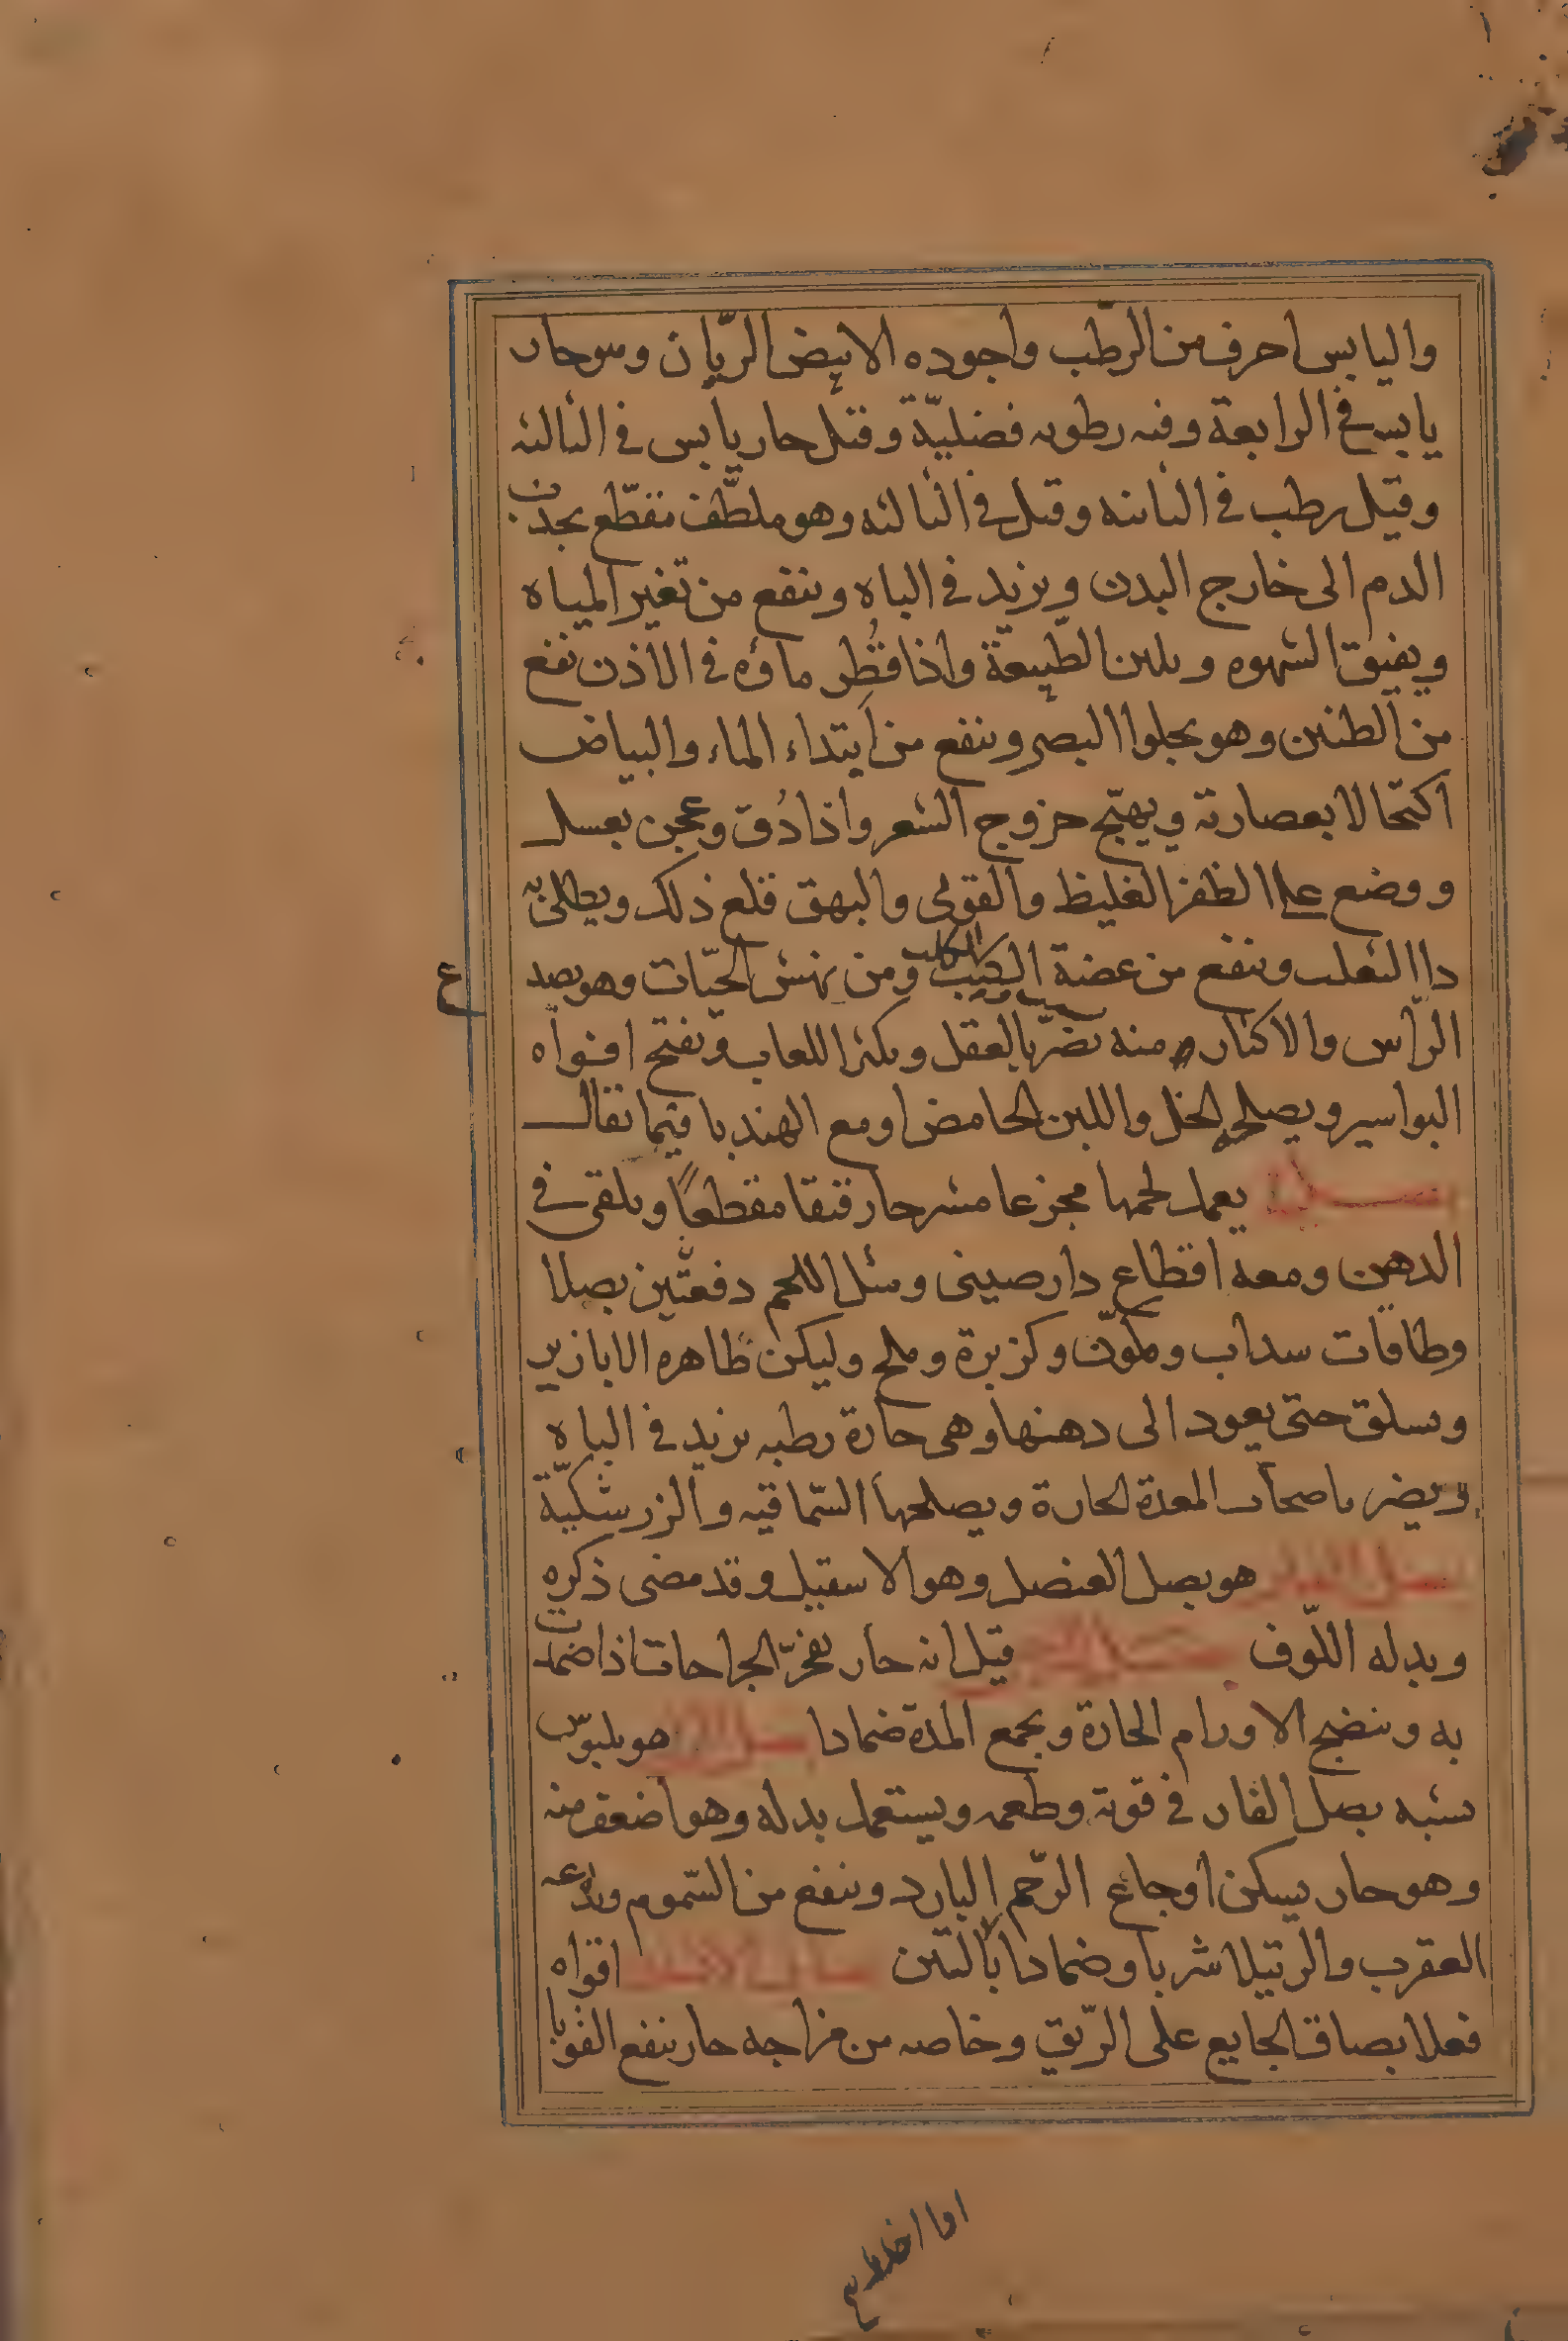 واليابس احرف من الرّطب واجوده الابيض الريّان وهو حار
يابس في الرابعة وفيه رطوبه فضليّة وقيل حار يابس في الثالثه
وقيل رطب في الثانيه وقيل في الثالثه وهو ملطّف مقطّع يجذب
الدم الى خارج البدن ويزيد في الباه وينفع من تغير المياه
ويفيق الشهوه ويلين الطبيعة واذا قُطِر ماؤه في الاذن نفع
من الطنين وهو يجلوا البصر وينفع من ابتداء الماء والبياض
اكتحالا بعصارته ويهيّج خروج الشعر واذا دُق وعجن بعسل
ووضع على الظفر الغليظ والقوبى والبهق قلع ذلك ويطلى به
دا الثعلب وينفع من عضة الكلب ومن نهش الحيّات وهو يصدع
الرّاس والاكثار منه يضرّ بالعقل ويكثر اللعاب ويفتح افواه
البواسير ويصلحه الخل واللبن الحامض او مع الهندبا فيما يقال
يعمل لحمها مجزعا مشرحا رقيقا مقطعًا ويلقى في
الدهن ومعه اقطاع دارصينى ومثل اللحم دفعتين بصلا
وطاقات سداب وكمّون وكزبرة وملح وليكن ظاهره الابازير
ويسلق حتى يعود الى دهنها وهى حارة رطبه يزيد في الباه
ويضر باصحاب المعدة الحارة ويصلحها السّماقيه والزرشكيّة
بصل الفار هو بصل العنصل وهو الاسقيل وقد مضى ذكره
وبدله اللّوف قيل انه حار يفجرّ الجراحات اذا ضمدت
به وينضج الاورام الحارة ويجمع المدة ضمادا هو بلبوس
يشبه بصل الفار في قوته وطعمه ويستعمل بدله وهو اضعف منه
وهو حار يسكن اوجاع الرّحم البارد وينفع من السّموم ولدغه
العقرب والرتيلا شربا وضمادا بالتين اقواه
فعلا بصاق الجايع على الرّيق وخاصه من مزاجه حار ينفع القوبا
اما اخلاع